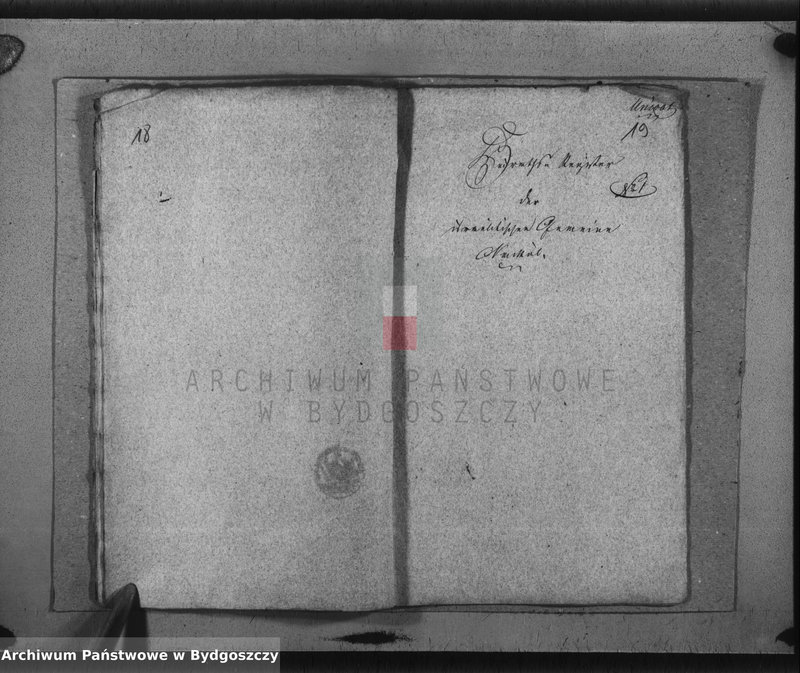 18
Unicat
19
Heiraths Register
No 1
der
israelitischen Gemeine
Nackel.
ARCHIWUM PAŃSTWOWE
W BYDGOSZCZY
Archiwum Państwowe w Bydgoszczy